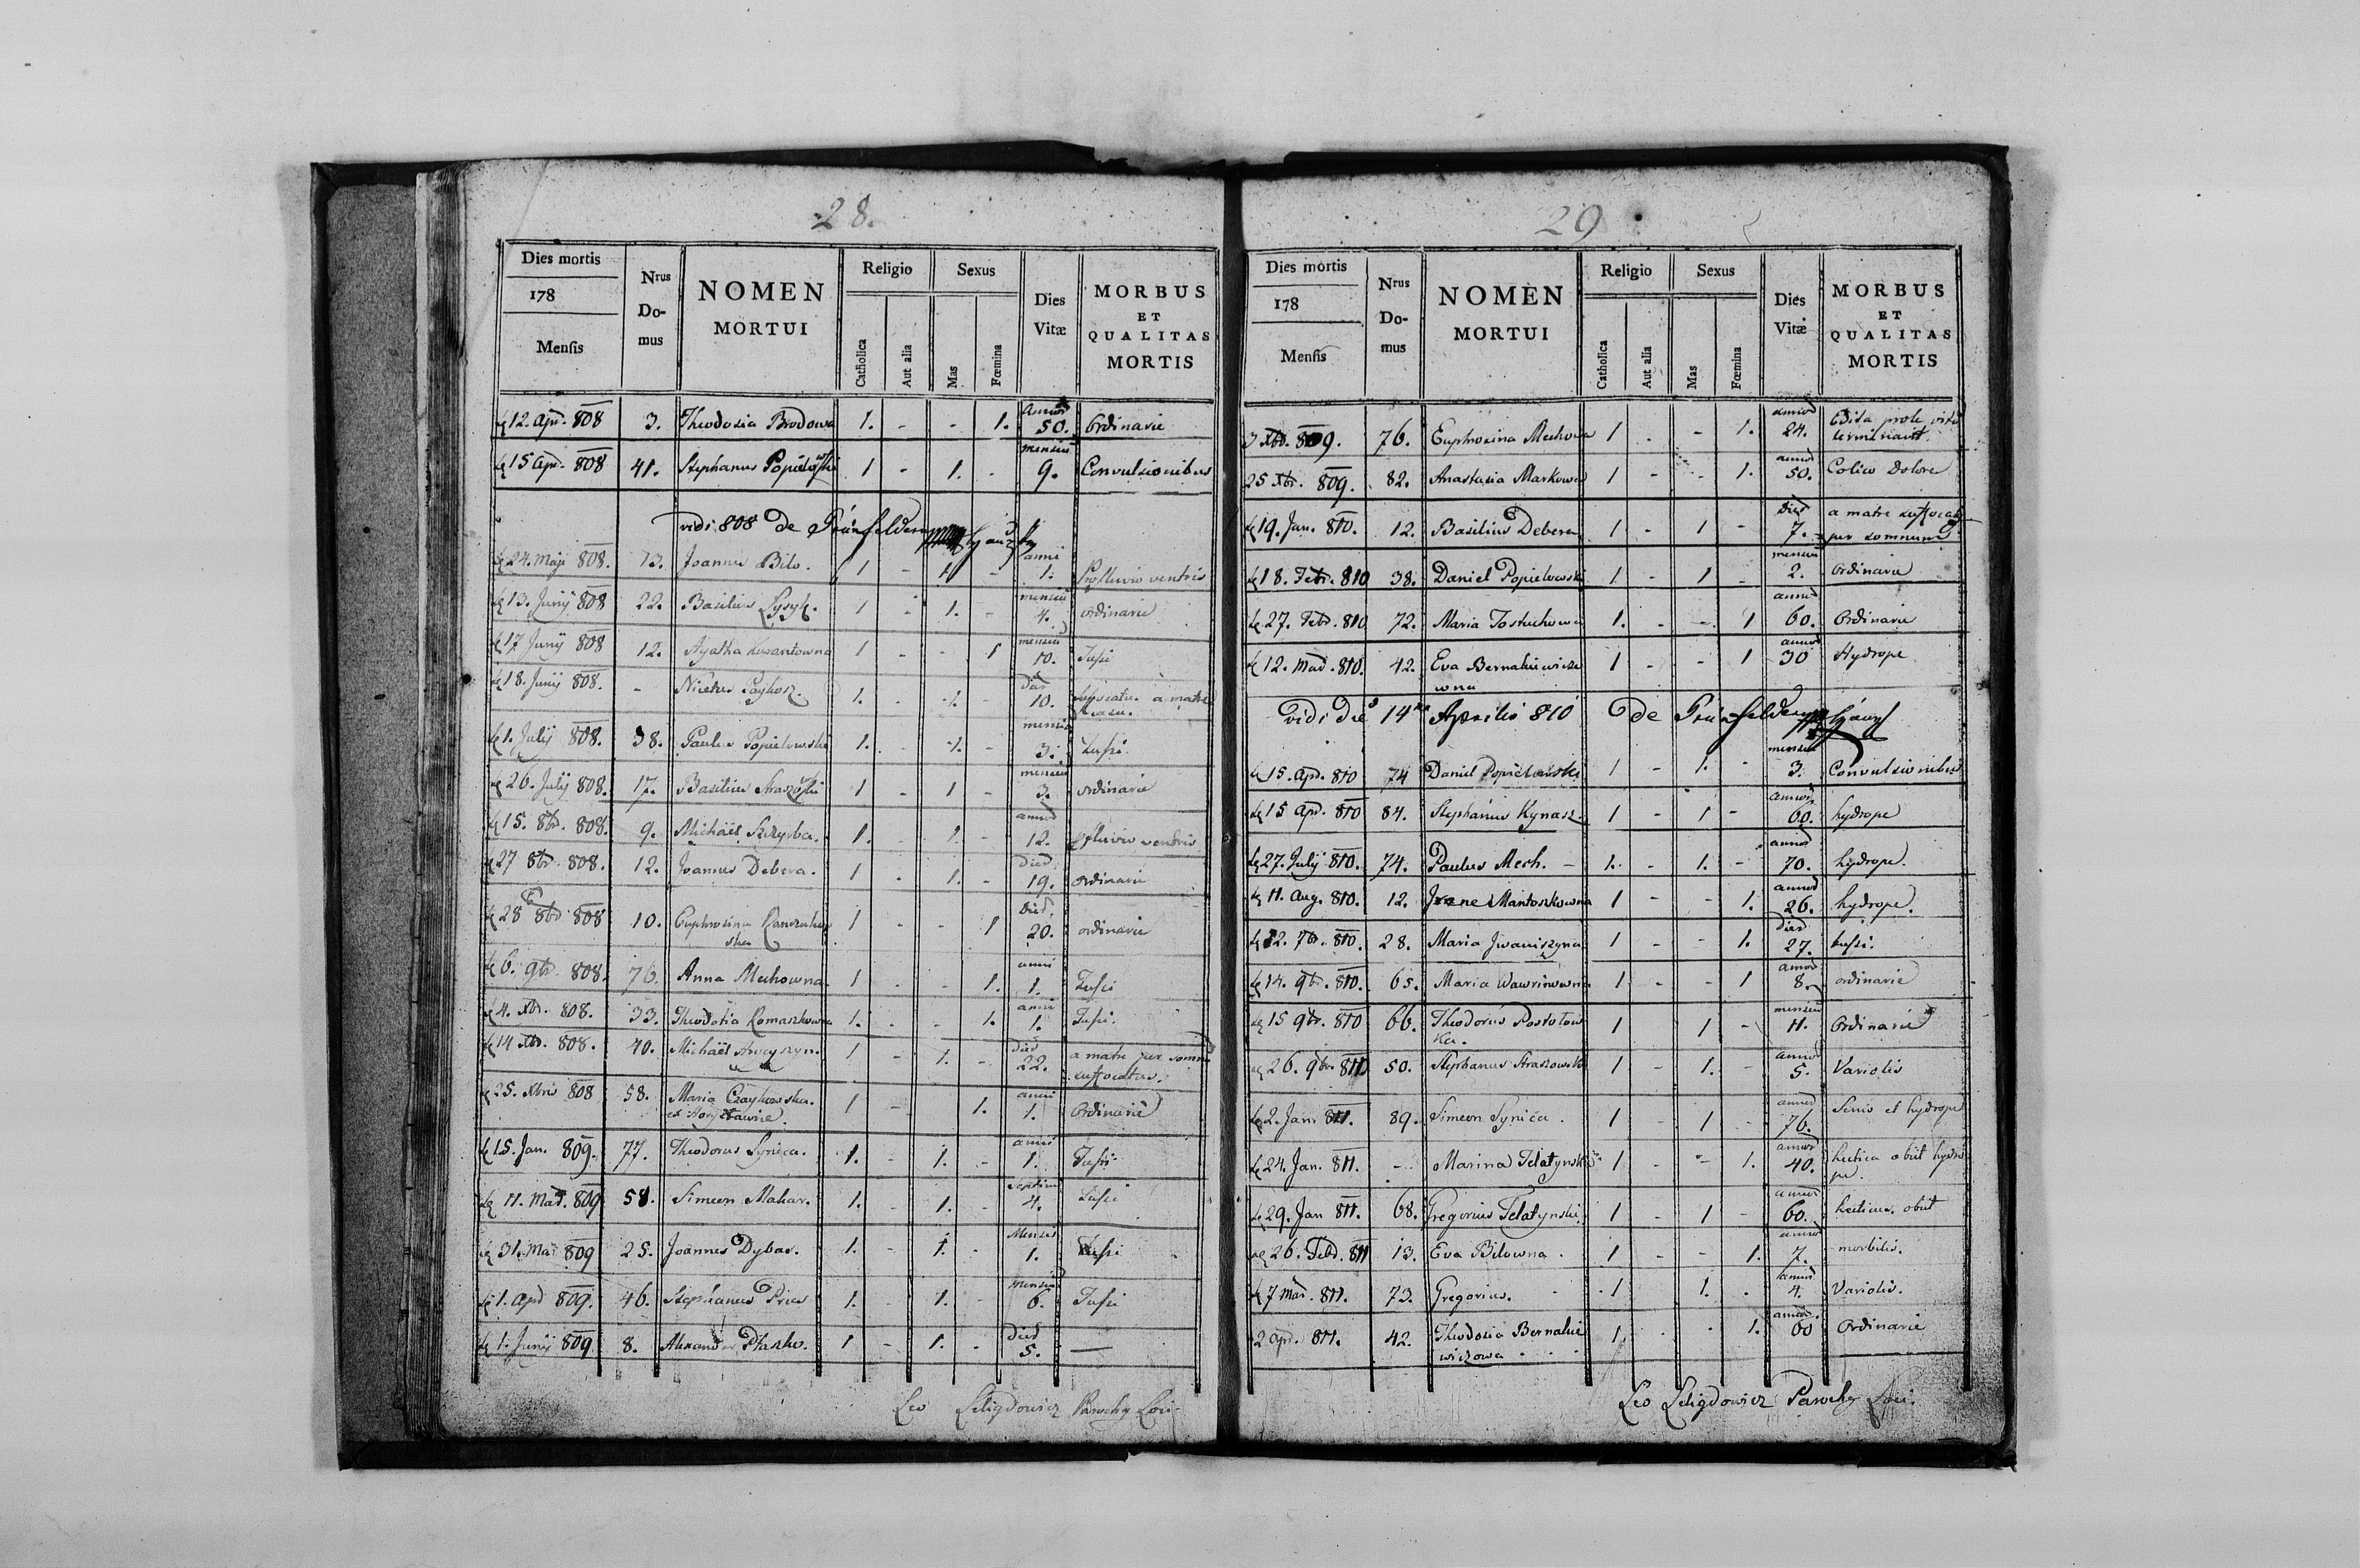 28.
Dies mortis
178
Mensis
Nrus Domus
NOMEN MORTUI
Religio
Catholica
Aut alia
Sexus
Mas
Fœmina
Dies Vitæ
MORBUS ET QUALITAS MORTIS
12. Apr. 808 3. Theodosia Brodowa 1. - - 1. annor 50. Ordinarie
15 Apr. 808 41. Stephanus Popielowski 1 - 1. mensiu 9. Convulsionibus
vidi 808 de Grünfelder
24. Maji 808. 13. Joannes Bilo. 1 - 1. - anni 1. Profluvio ventris
13. Junij 808 22. Basilius Lysyk. 1 - 1. - mensiu 4. ordinarie
17 Junij 808 12. Agatha 1 - - 1 mensiu 10. Tussi
18. Junij 808. - 1. - 1. dier 10. a matre
1. Julij 808. 38. Paulus Popielowski 1. - 1. - mensiu 3. Tussi
26. Julij 808. 17. Basilius 1 - 1 - mensiu 3. ordinarie
15. 8br. 808. 9. Michaël Szczyrba. 1. 1. - annor 12. ventris
27 8br. 808. 12. Joannes Debera. 1 - 1. - dier 19. ordinarie
28 8br 808 10. Euphrosina 1 - - 1 dier 20. ordinarie
6. 9br. 808. 76. Anna Mechowna 1 - - 1. anni 1. Tussi
4. Xbr. 808. 33. Theodosia Romaszkowna 1. - - 1. anni 1. Tussi.
14 Xbr. 808. 40. Michaël 1 - 1. - dier 22. a matre per somnu
suffocatus.
25. Xbris 808 58. Maria Czaykowska. 1 - 1. anni 1. Ordinarie
15. Jan. 809. 77. Theodorus Synica. 1. - 1. - anni 1. Tussi
11. Mar. 809 58. Simeon Mahar. 1. - 1. - 4. Tussi
31. Mar 809 25. Joannes Dybar. 1. - 1. - Mensis 1. Tussi
1. Apr 809. 46. Stephanus Pries 1. - 1. - mensiu 6. Tussi
1. Junij 809 8. Alexander Ptaszko. 1 - 1. - dier 5. —
Leo Seligdowicz Parochy Loci
29
Dies mortis
178
Mensis
Nrus Domus
NOMEN MORTUI
Religio
Catholica
Aut alia
Sexus
Mas
Fœmina
Dies Vitæ
MORBUS ET QUALITAS MORTIS
3 Xbr. 809. 76. Euphrosina Mechowa 1 - - 1. annor 24. Edita prole vita
terminavit.
25 Xbr. 809. 82. Anastasia Markowa 1 - - 1. annor 50. Colico dolore
19. Jan. 810. 12. Basilius Debera 1 - 1 - dier 7. a matre suffocat
per somnum
18. Febr. 810 38. Daniel Popielowski 1 - 1 - mensiu 2. Ordinarie
27. Febr. 810 72. Maria 1. - - 1 annor 60. Ordinarie
12. Mar. 810. 42. Eva Bernakiewiczo 1 - - 1 annor 30 Hydrope
wna
vidi die 14 Aprilis 810 de Grünfelder
15. Apr. 810 74 Daniel Popielowski 1 - 1. - mensiu 3. Convulsionibus
15 Apr. 810 84. Stephanus Kynasz 1 - 1 - annor 60. hydrope
27. Julij 810. 74. Paulus Mech. - 1. - 1. - annor 70. hydrope.
11. Aug. 810. 12. Mantoszkowna 1 - - 1. annor 26. hydrope.
22. 7br. 810. 28. Maria Jwaniszyna 1 - - 1. dier 27. tussi.
14. 9br. 810. 65. Maria Wawrinowna 1 - - 1 annor 8. ordinarie
15 9br. 810 66. Theodorus 1 1 - mensiu 11. Ordinarie
26. 9br. 50. Stephanus Straszowski 1 - 1. - annor 5. Variolis
2. Jan. 811. 89. Simeon Synica. 1 - 1 - annor 76. Senio et hydrope
24. Jan. 811. - Marina Telatynska 1 - - 1. annor 40. hectica obiit hydro
pe.
29. Jan 811. 68. Gregorius Telatynski. 1 - 1 - annor 60. hecticus obiit
26. Febr. 811 13. Eva Bilowna. 1 - - 1. annor 7. morbilis.
7 Mar. 811. 73. Gregorius. 1 1. - annor 4. Variolis.
2 Apr. 811. 42. Theodosia Bernakie 1. - - 1. annor 60 Ordinarie
wiczowa
Leo Seligdowicz Parochy Loci.